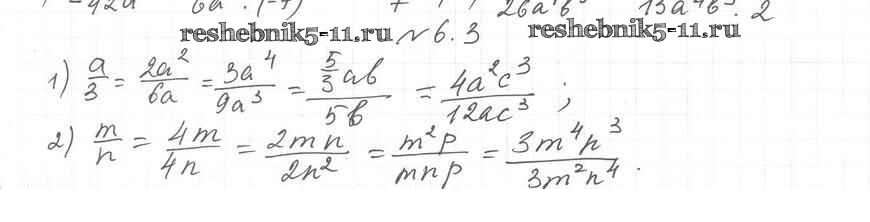 -42a 6a · (-7) 7 26a b 13a⁴b · 2
reshebnik5-11.ru № 6.3 reshebnik5-11.ru
1) a/3 = 2a²/6a = 3a⁴/9a³ = 5/3ab/5b = 4a²c³/12ac³ ;
2) m/n = 4m/4n = 2mn/2n² = m²p/mnp = 3m⁴n³/3m²n⁴ .